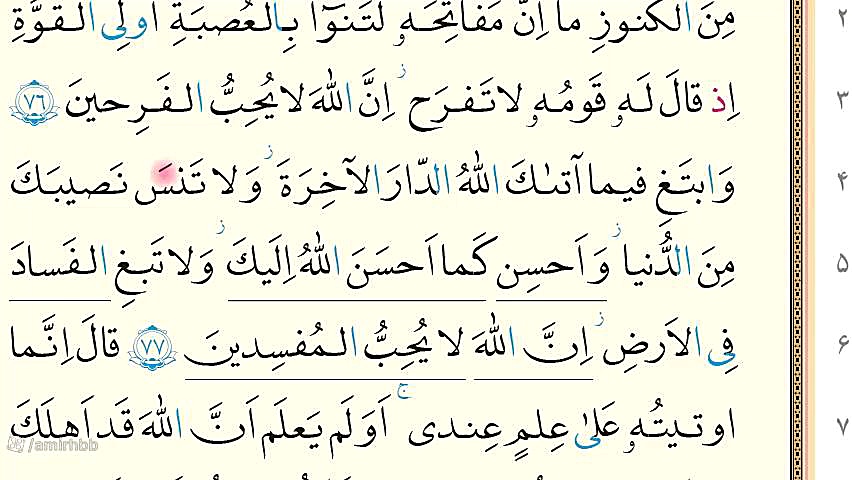 مِنَ الكُنوزِ ما اِنَّ مَفاتِحَهٗ لَتَنوٓأُ بِالعُصبَةِ اُولِی القُوَّةِ ٢
اِذ قالَ لَهٗ قَومُهٗ لا تَفرَح ز اِنَّ اللّٰهَ لا يُحِبُّ الفَرِحينَ ٧٦ ٣
وَابتَغِ فيما آتىٰكَ اللّٰهُ الدّارَ الآخِرَةَ ز وَلا تَنسَ نَصيبَكَ ۴
مِنَ الدُّنيا ز وَاَحسِن كَما اَحسَنَ اللّٰهُ اِلَيكَ ز وَلا تَبغِ الفَسادَ ۵
فِی الاَرضِ ز اِنَّ اللّٰهَ لا يُحِبُّ المُفسِدينَ ٧٧ قالَ اِنَّما ۶
اوتيتُهٗ عَلىٰ عِلمٍ عِندی ج اَوَلَم يَعلَم اَنَّ اللّٰهَ قَد اَهلَكَ ٧
/amirhbb